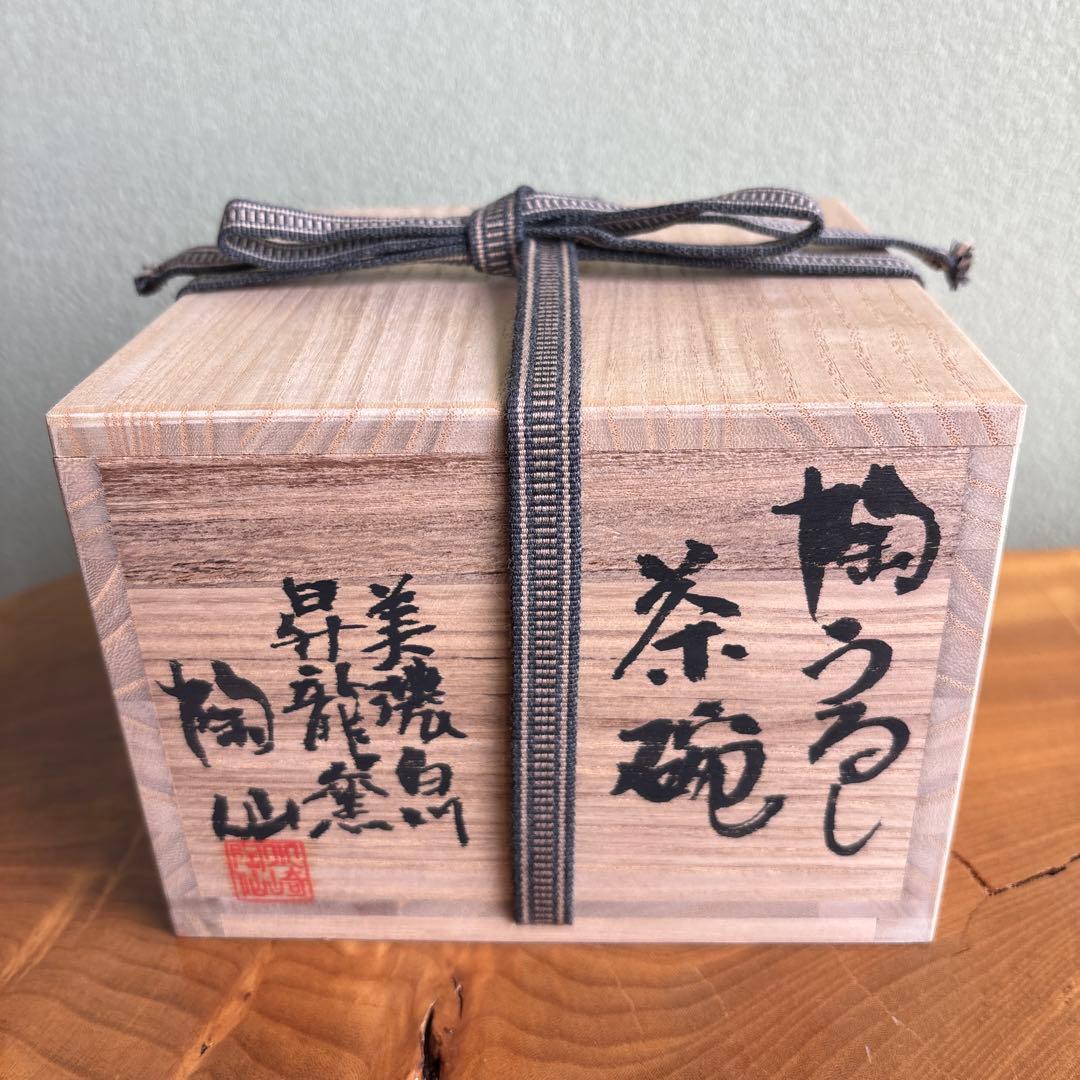 陶うるし
茶碗
美濃白川
昇龍窯
陶仙